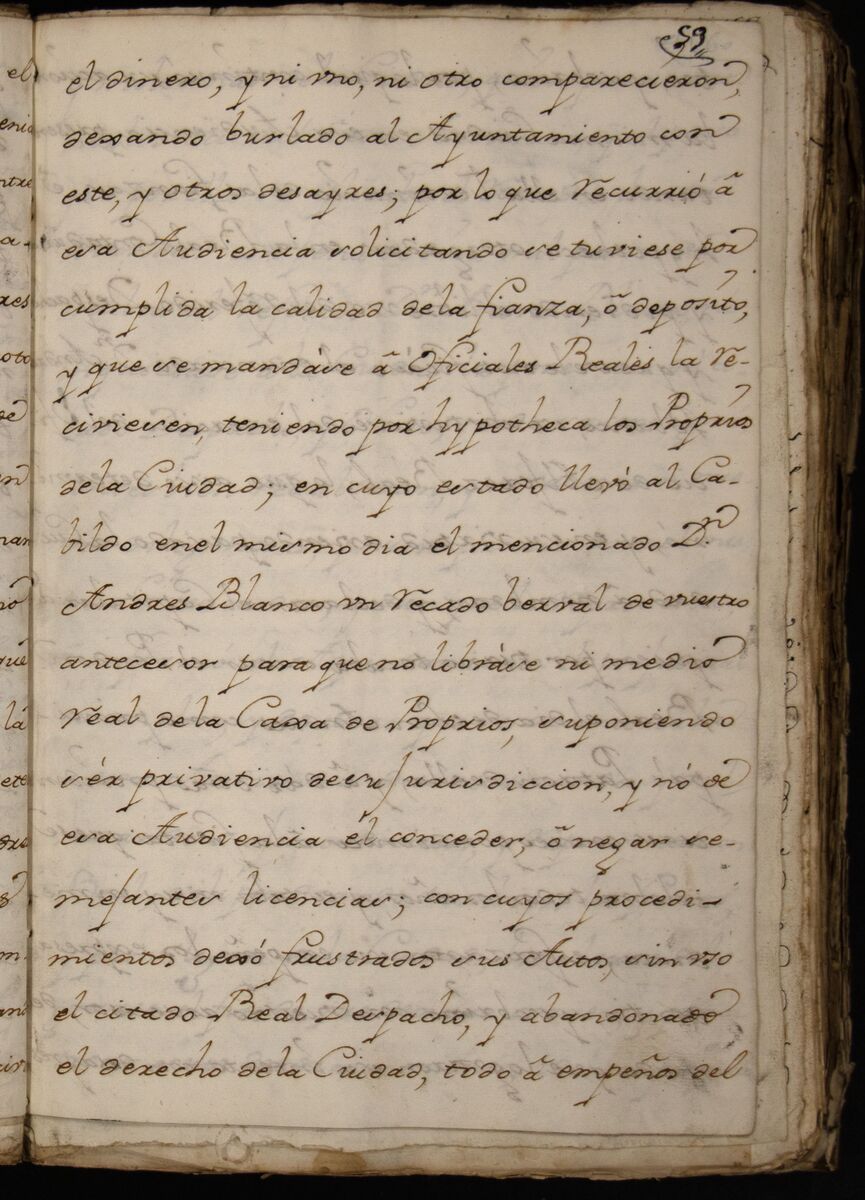 59
el dinero, y ni vno, ni otro comparecieron,
dexando burlado al Ayuntamiento con
este, y otros desayres; por lo que recurrió â
esa Audiencia solicitando se tuviese por
cumplida la calidad dela fianza, ô deposito,
y que se mandáse â Oficiales Reales la re-
civiesen, teniendo por hypotheca los Proprios
dela Ciudad; en cuyo estado llevó al Ca-
bildo enel mismo dia el mencionado Dn.
Andres Blanco vn recado berval de vuestro
antecesor para que no libráse ni medio
real dela Caxa de Proprios, suponiendo
sér privativo desu Jurisdiccion, y nó de
esa Audiencia él conceder, ô negar se-
mejantes licencias; con cuyos procedi-
mientos dexó frustrados sus Autos, sin vso
el citado Real Despacho, y abandonado
el derecho dela Ciudad, todo â empeños del